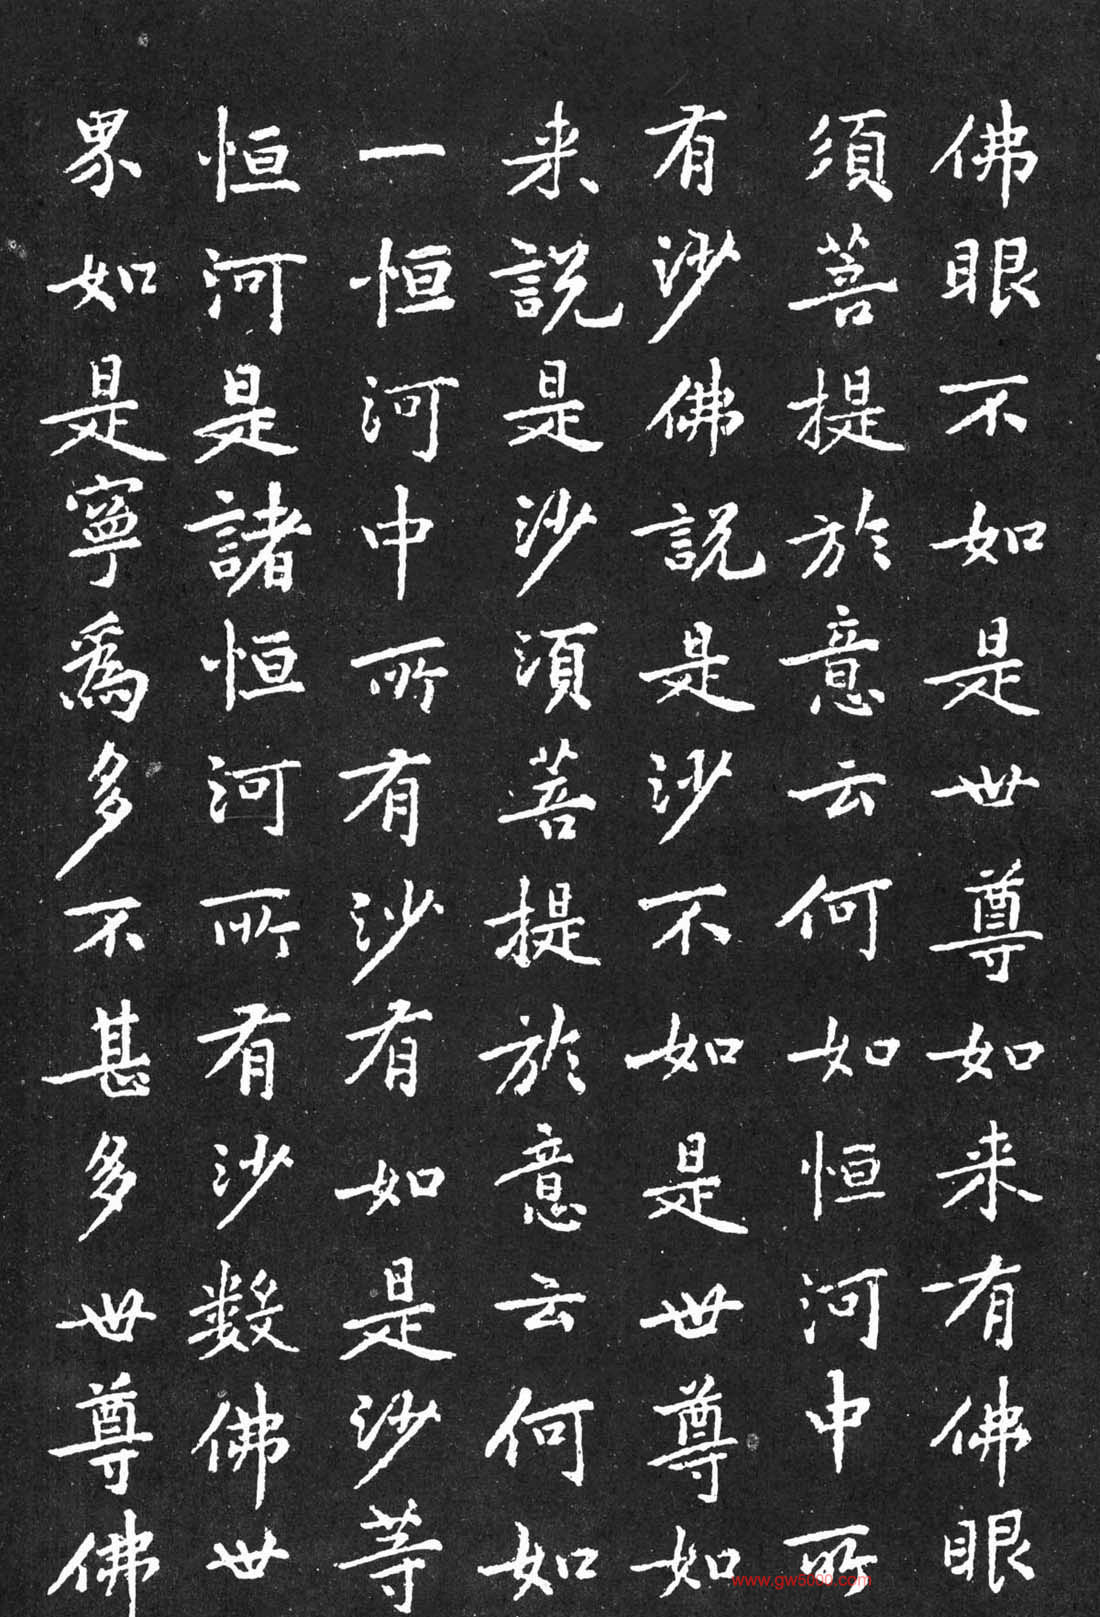 佛眼不如是世尊如来有佛眼
須菩提於意云何如恒河中所
有沙佛説是沙不如是世尊如
来説是沙須菩提於意云何如
一恒河中所有沙有如是沙等
恒河是諸恒河所有沙數佛世
界如是寧爲多不甚多世尊佛
www.gw5000.com